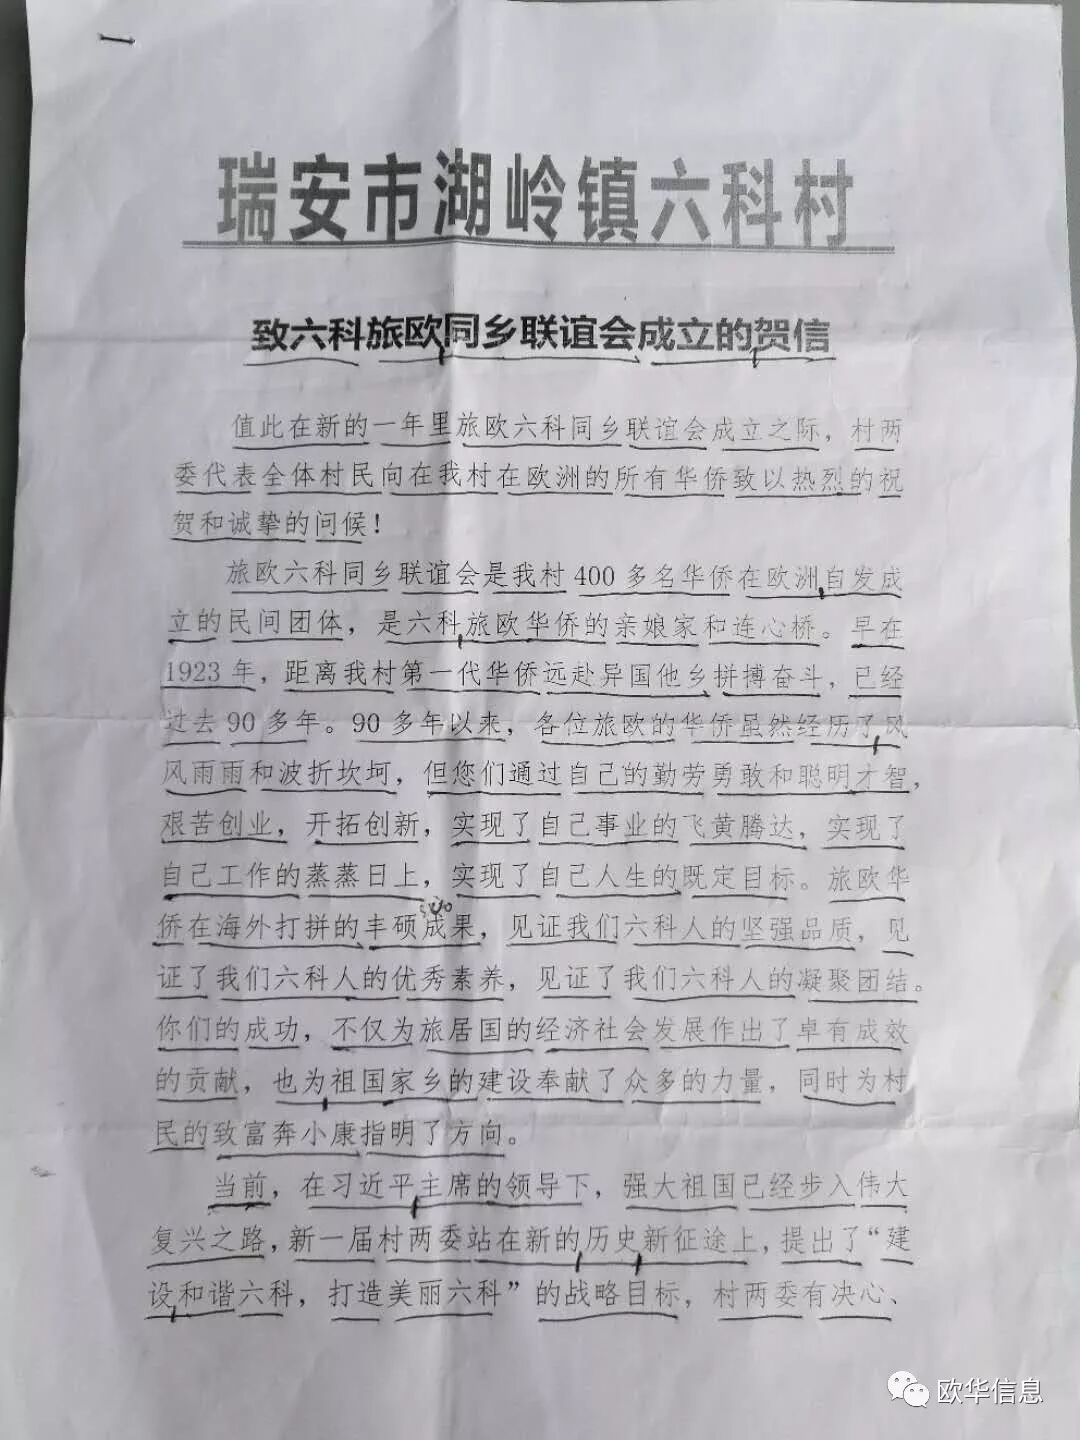 瑞安市湖岭镇六科村
致六科旅欧同乡联谊会成立的贺信
值此在新的一年里旅欧六科同乡联谊会成立之际，村两
委代表全体村民向在我村在欧洲的所有华侨致以热烈的祝
贺和诚挚的问候！
旅欧六科同乡联谊会是我村 400 多名华侨在欧洲自发成
立的民间团体，是六科旅欧华侨的亲娘家和连心桥。早在
1923 年，距离我村第一代华侨远赴异国他乡拼搏奋斗，已经
过去 90 多年。90 多年以来，各位旅欧的华侨虽然经历了风
风雨雨和波折坎坷，但您们通过自己的勤劳勇敢和聪明才智，
艰苦创业，开拓创新，实现了自己事业的飞黄腾达，实现了
自己工作的蒸蒸日上，实现了自己人生的既定目标。旅欧华
侨在海外打拼的丰硕成果，见证我们六科人的坚强品质，见
证了我们六科人的优秀素养，见证了我们六科人的凝聚团结。
你们的成功，不仅为旅居国的经济社会发展作出了卓有成效
的贡献，也为祖国家乡的建设奉献了众多的力量，同时为村
民的致富奔小康指明了方向。
当前，在习近平主席的领导下，强大祖国已经步入伟大
复兴之路，新一届村两委站在新的历史新征途上，提出了“建
设和谐六科，打造美丽六科”的战略目标，村两委有决心、
欧华信息